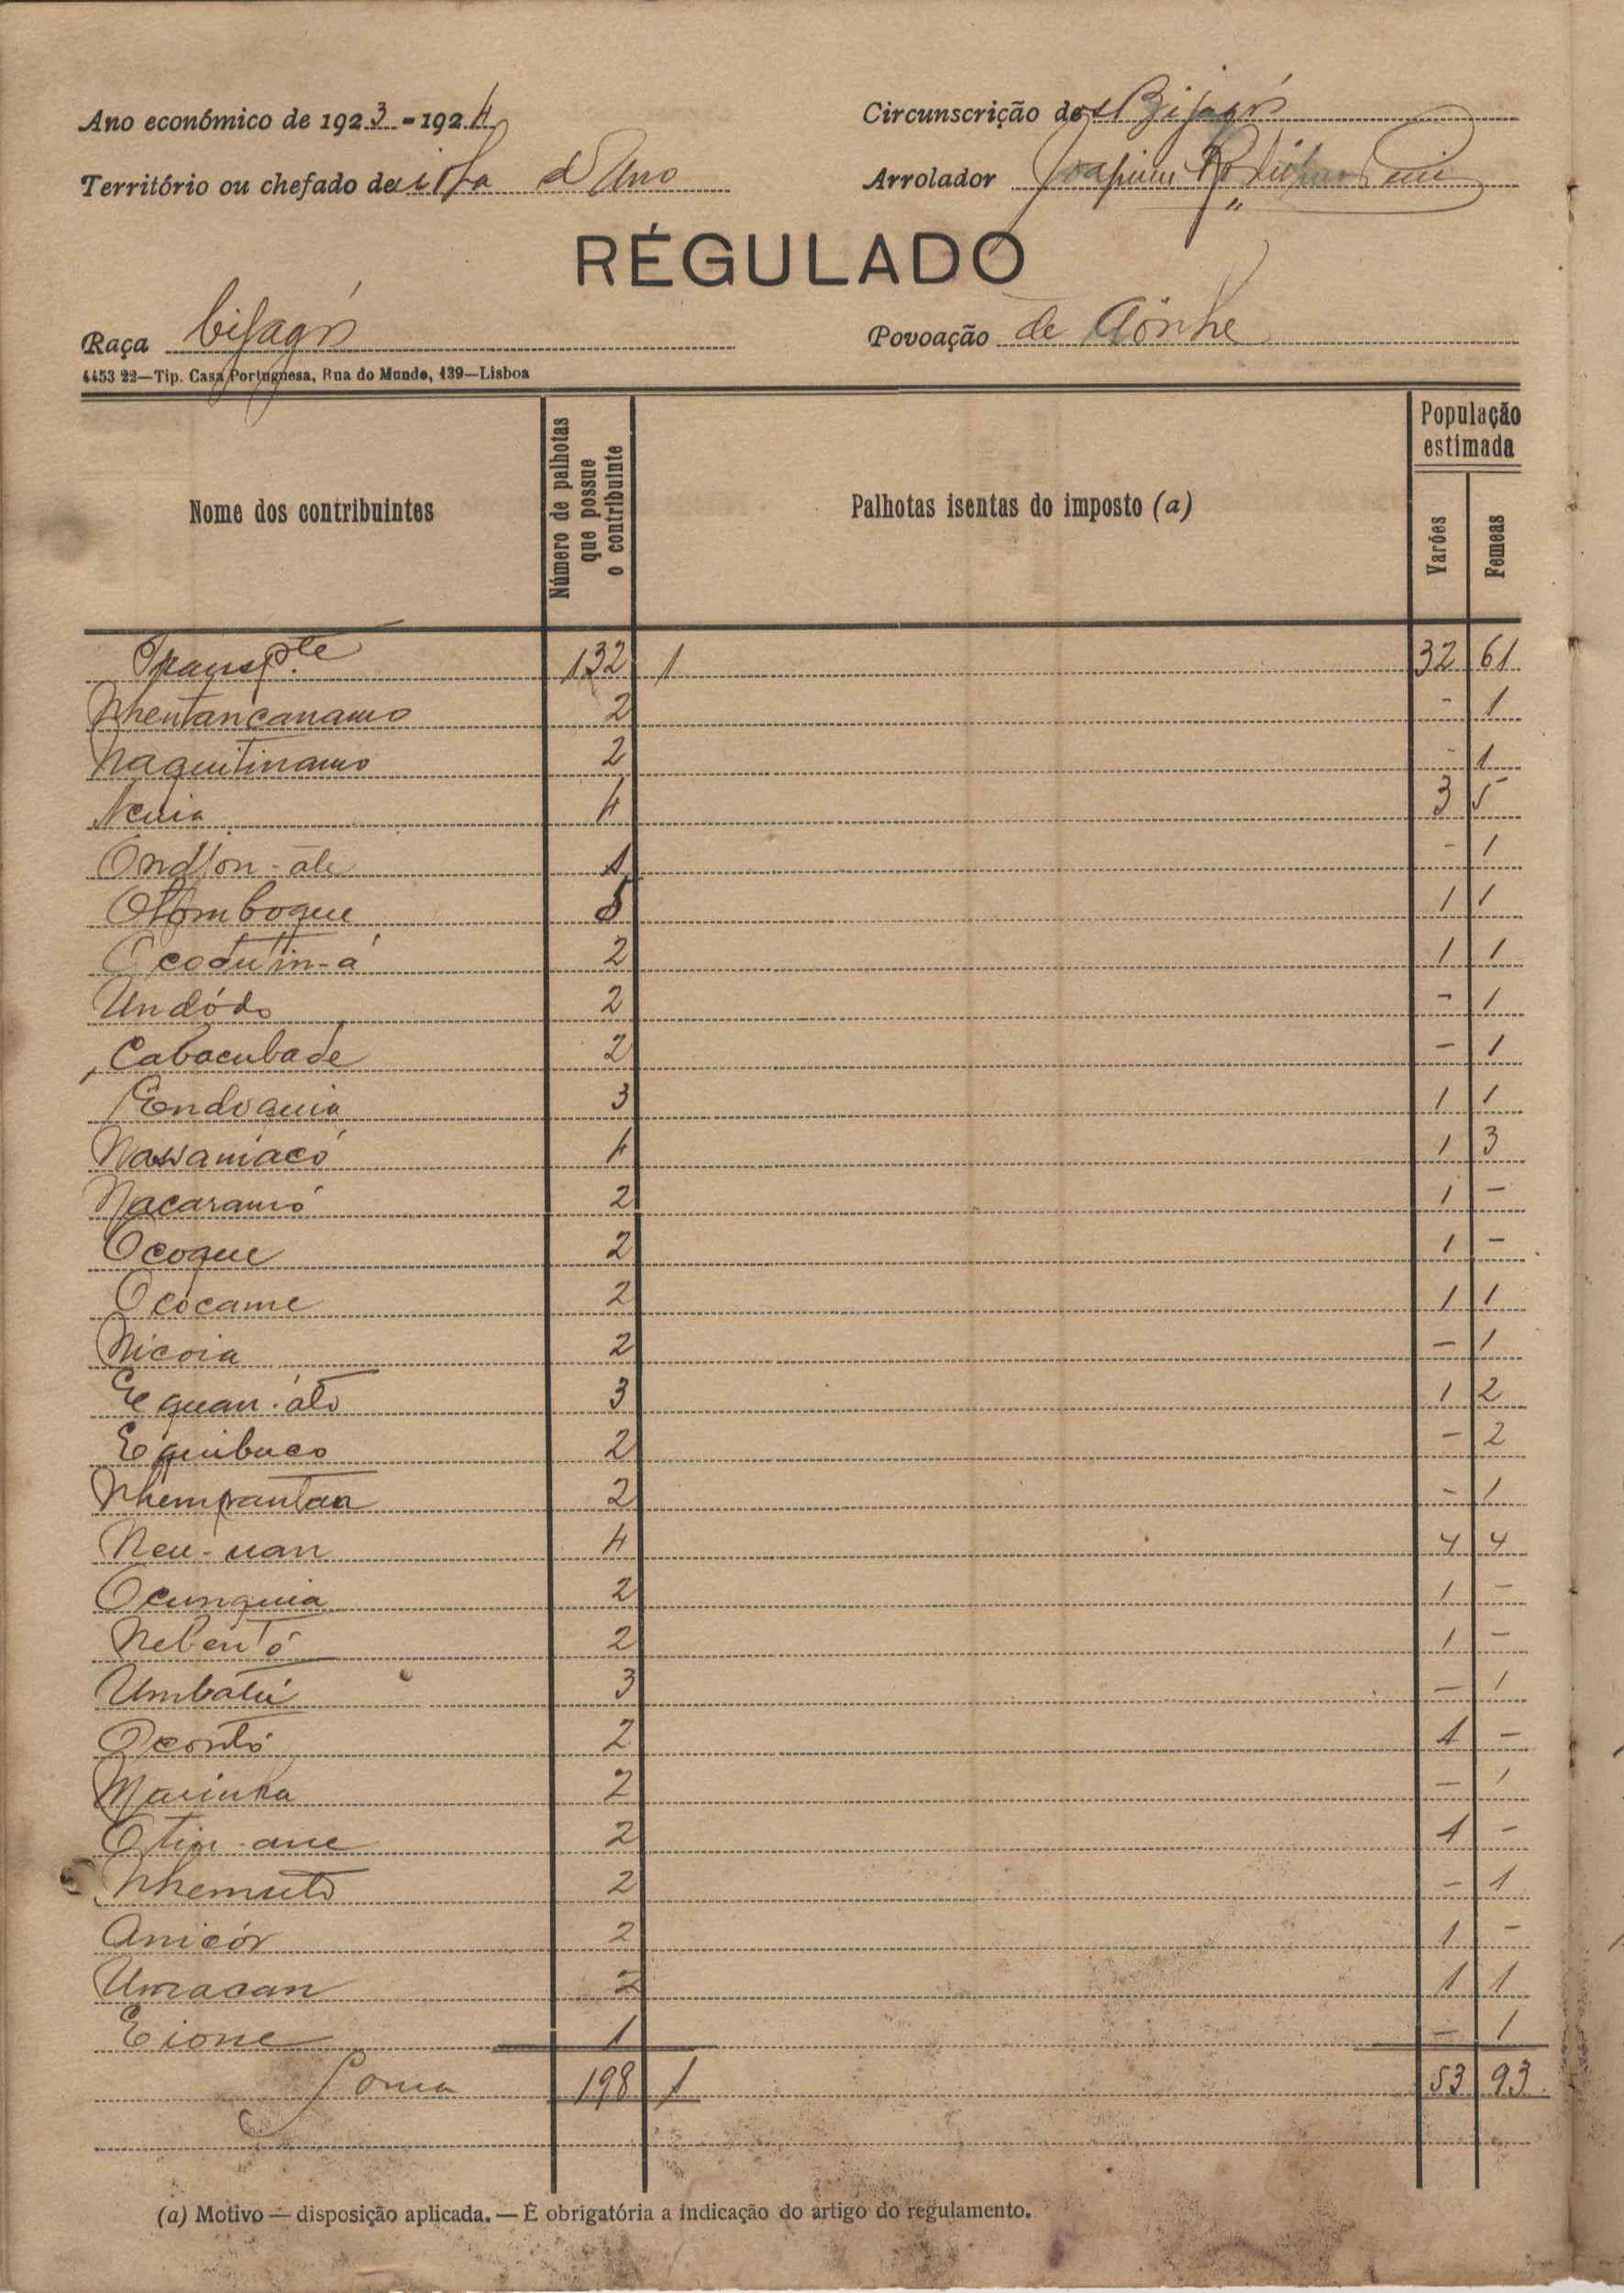 Ano económico de 1923-1924
Circunscrição dos Bijagós
Território ou chefado de ilha d Uno
Arrolador Joaquim
RÉGULADO
Raça bijagós
Povoação de
4453 22—Tip. Casa Portuguesa, Rua do Mundo, 139—Lisboa
Nome dos contribuintes
Número de palhotas que possue o contribuinte
Palhotas isentas do imposto (a)
População estimada
Varões
Femeas
Transpte 132 1 32 61
Nhentancanamo 2 - 1
Naquitinamo 2 - 1
Neuia 4 3 5
Ondjon-ale 1 - 1
Otomboque 5 1 1
Ocodutin-á 2 1 1
Undódo 2 - 1
Cabacubade 2 - 1
Endoquia 3 1 1
Nassaniacó 4 1 3
Nacaramó 2 1 -
Ocoque 2 1 -
Ococame 2 1 1
Nicoia 2 - 1
Equan-áto 3 1 2
Equibuco 2 - 2
Nhemprantan 2 - 1
Neu-uan 4 4 4
Ocunquia 2 1 -
Nebentó 2 1 -
Umbatú 3 - 1
Ocontó 2 1 -
Marinha 2 - 1
Otin-ane 2 1 -
Nhemuto 2 - 1
Anicór 2 1 -
Umracan 2 1 1
Eione 1 - 1
Soma 198 1 53 93
(a) Motivo — disposição aplicada. — É obrigatória a indicação do artigo do regulamento.